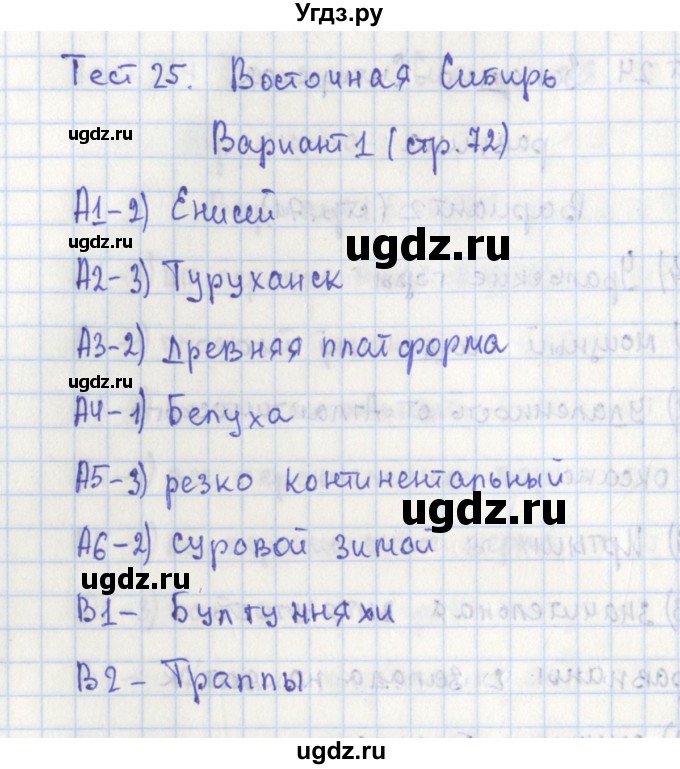 Угдз.ру
Тест 25. Восточная Сибирь
ugdz.ru
Вариант 1 (стр. 72)
А1-2) Енисей
ugdz.ru
ugdz.ru
А2-3) Туруханск
А3-2) Древняя платформа
ugdz.ru
А4-1) Белуха
А5-3) резко континентальный
ugdz.ru
А6-2) суровой зимой
ugdz.ru
В1- Булгунняхи
ugdz.ru
В2- Траппы
ugdz.ru